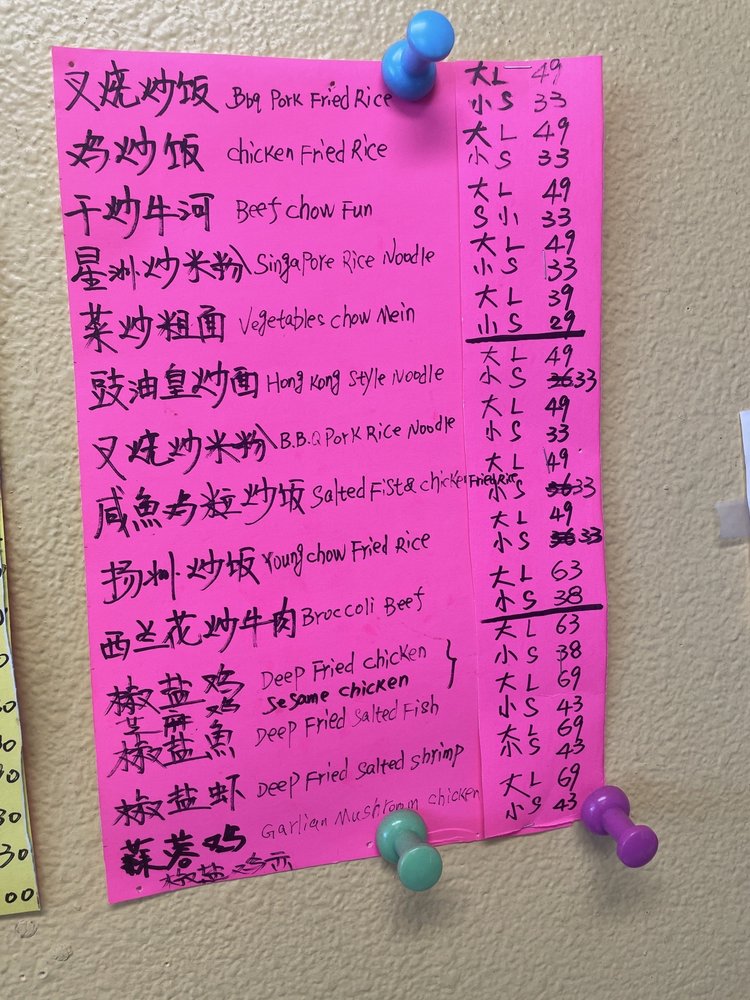 叉烧炒饭 Bbq Pork Fried Rice 大 L 49
小 S 33
鸡炒饭 chicken Fried Rice 大 L 49
小 S 33
干炒牛河 Beef chow Fun 大 L 49
S 小 33
星洲炒米粉 Singapore Rice Noodle 大 L 49
小 S 33
菜炒粗面 Vegetables chow Mein 大 L 39
小 S 29
豉油皇炒面 Hong Kong Style Noodle 大 L 49
小 S 33
叉烧炒米粉 B.B.Q Pork Rice Noodle 大 L 49
小 S 33
咸魚鸡粒炒饭 Salted Fist & chicken Fried Rice 大 L 49
小 S 33
扬州炒饭 Young chow Fried Rice 大 L 49
小 S 33
西兰花炒牛肉 Broccoli Beef 大 L 63
小 S 38
椒盐鸡 Deep Fried chicken 大 L 63
芝麻鸡 Sesame chicken 小 S 38
椒盐魚 Deep Fried Salted Fish 大 L 69
小 S 43
椒盐虾 Deep Fried Salted shrimp 大 L 69
小 S 43
蒜蓉鸡 Garlian Mushroom chicken 大 L 69
小 S 43
椒盐鸡
30
30
00